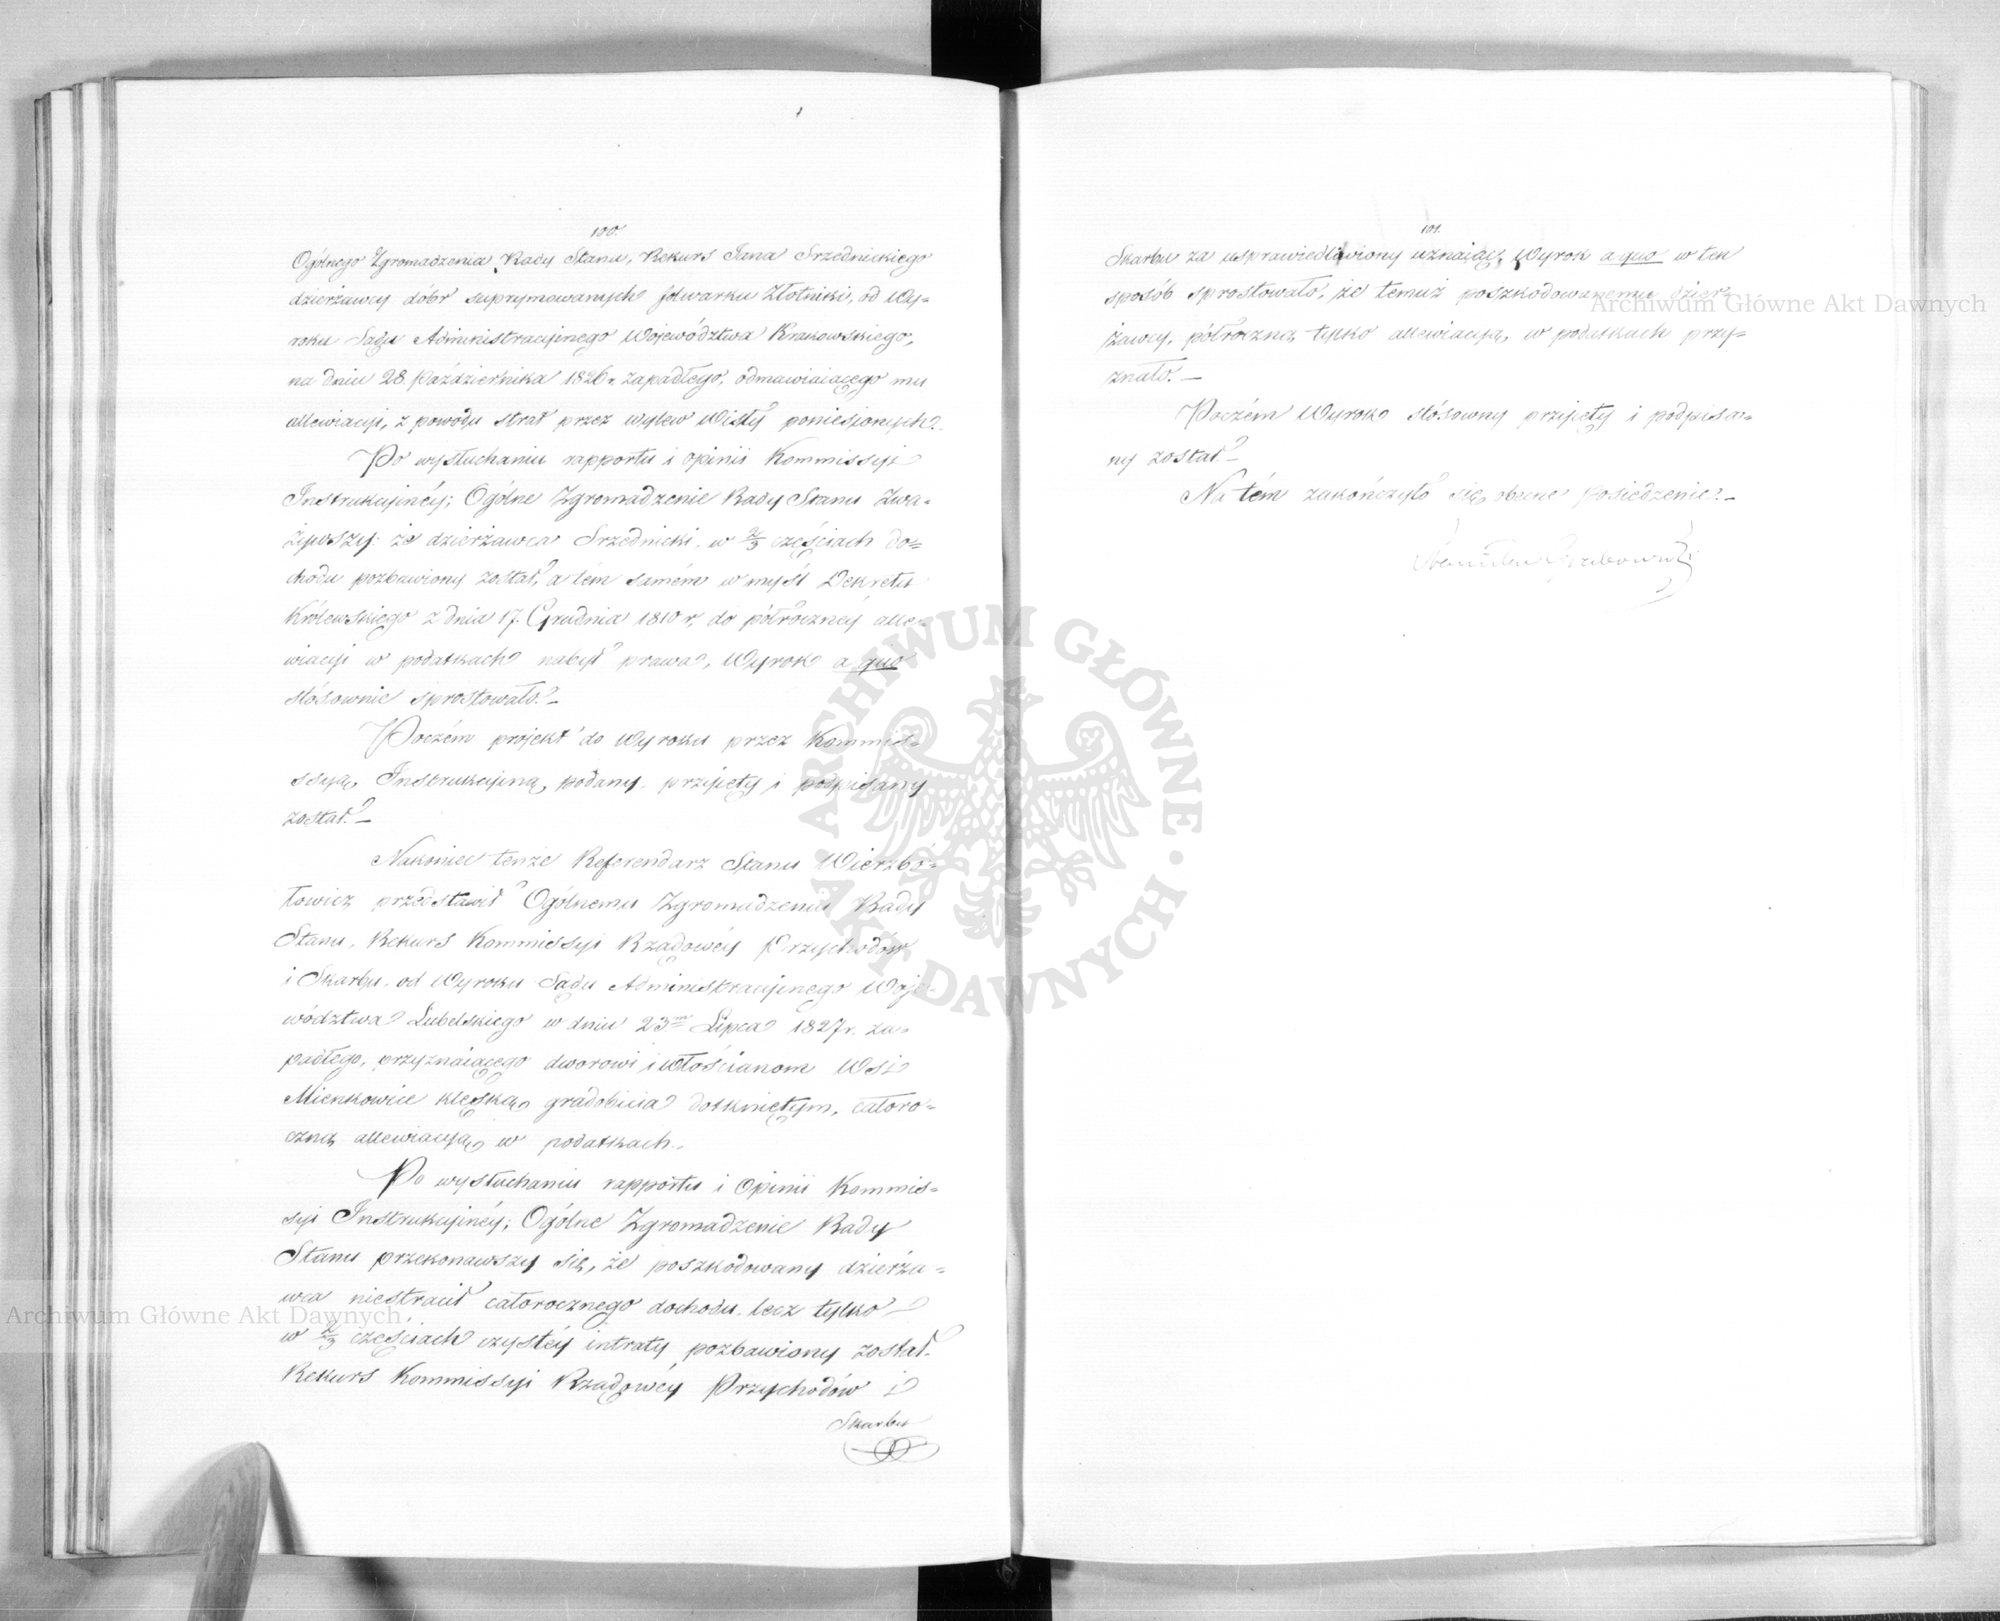 100.
Ogólnego Zgromadzenia Rady Stanu, Rekurs Jana Srzednickiego
dzierżawcy dóbr suprymowanych folwarku Złotniki, od Wy-
roku Sądu Administracyjnego Województwa Krakowskiego,
na dniu 28. Października 1826 r. zapadłego, odmawiaiącego mu
allewiacyi, z powodu strat przez wylew Wisły poniesionych.
Po wysłuchaniu rapportu i opinii Kommissyi
Instrukcyinéy; Ogólne Zgromadzenie Rady Stanu zwa-
żywszy: że dzierżawca Srzednicki, w 2/3 częściach do-
chodu pozbawiony został, a tém samém w myśl Dekretu
Królewskiego z dnia 17. Grudnia 1810 r. do półrocznéy alle-
wiacyi w podatkach nabył prawa, Wyrok a quo
stósownie sprostowało.–
Poczém projekt do Wyroku przez Kommis-
ssyią Instrukcyiną podany, przyięty i podpisany
został.–
Nakoniec tenże Referendarz Stanu Wierzbó-
łowicz przedstawił Ogólnemu Zgromadzeniu Rady
Stanu, Rekurs Kommissyi Rządowéy Przychodów
i Skarbu, od Wyroku Sądu Administracyinego Woje-
wództwa Lubelskiego w dniu 23m Lipca 1827 r. za-
padłego, przyznaiącego dworowi i włościanom Wsi
Mienkowice klęską gradobicia dotkniętym, całoro-
czną allewiacyią w podatkach.
Po wysłuchaniu rapportu i Opinii Kommis-
syi Instrukcyinéy; Ogólne Zgromadzenie Rady
Stanu przekonawszy się, że poszkodowany dzierża-
wca niestracił całorocznego dochodu, lecz tylko
w 2/3 częściach czystéy intraty pozbawiony został.
Rekurs Kommissyi Rządowéy Przychodów i
Skarbu
101.
Skarbu za usprawiedliwiony uznaiąc, Wyrok a quo w ten
sposób sprostowało, że temuż poszkodowanemu dzier-
żawcy, półroczną tylko allewiacyią w podatkach przy-
znało.–
Poczém Wyrok stósowny przyięty i podpisa-
ny został.–
Na tém zakończyło się obecne posiedzenie.–
Stanisław Grabowski
Archiwum Główne Akt Dawnych
Archiwum Główne Akt Dawnych
ARCHIWUM GŁÓWNE • AKT DAWNYCH •